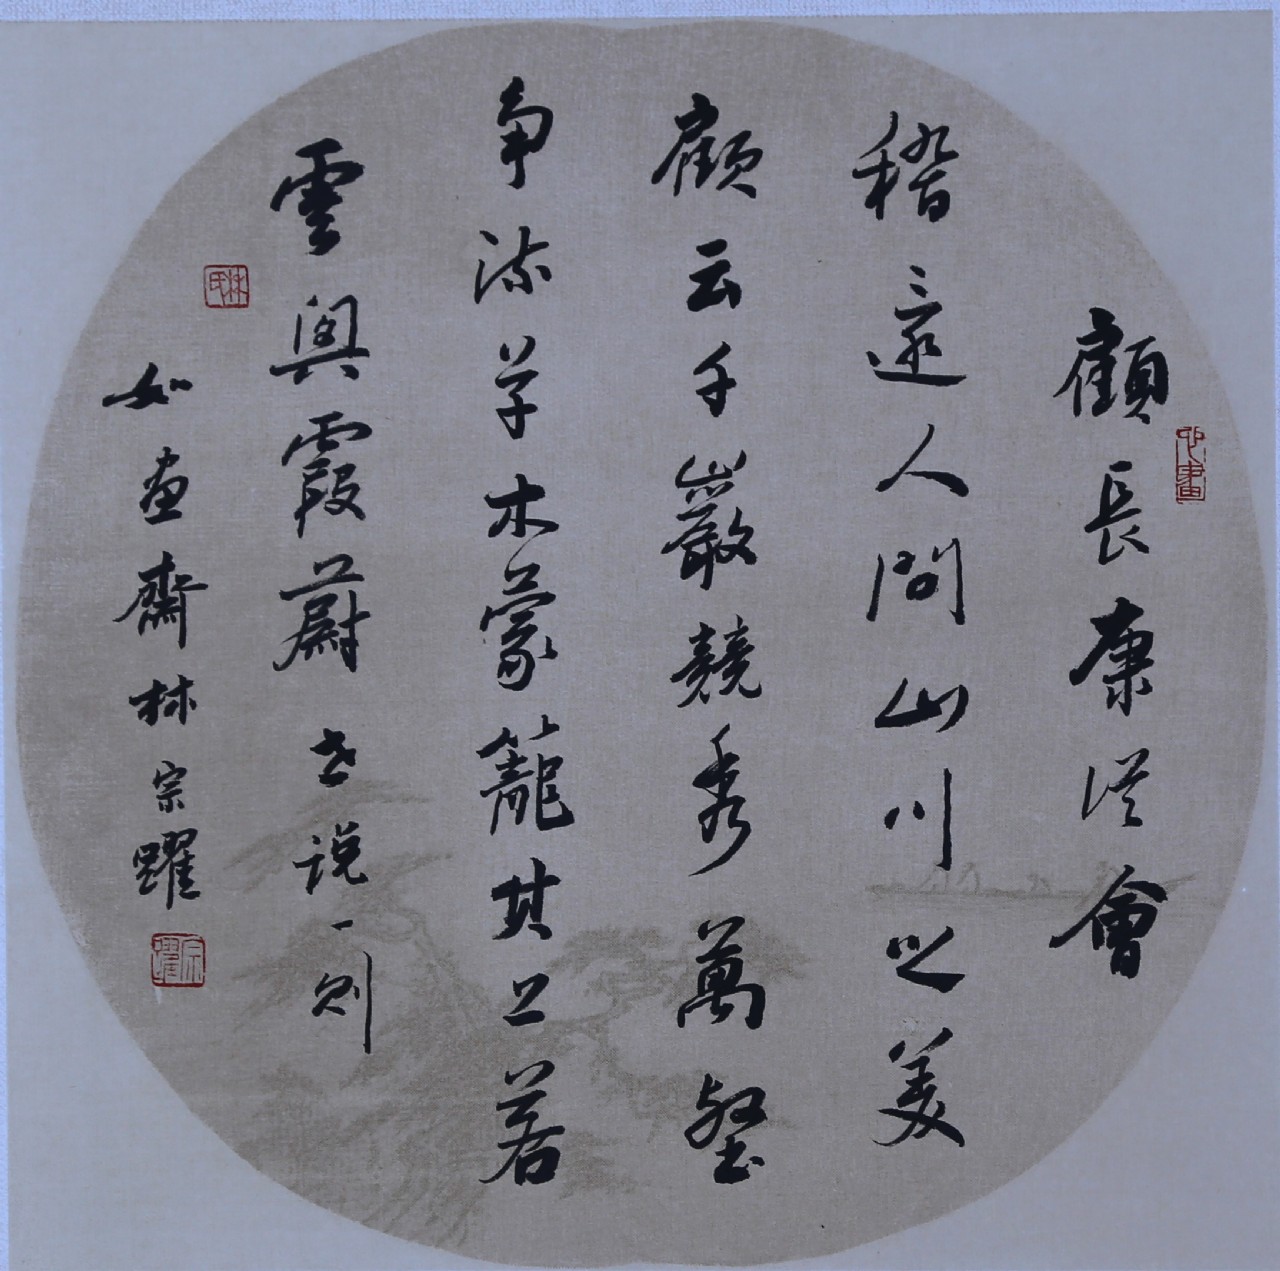 顧長康從會
稽還人問山川之美
顧云千巖競秀萬壑
争流草木蒙籠其上若
雲興霞蔚 世说一则
如画齋林宗躍
林氏
宗躍